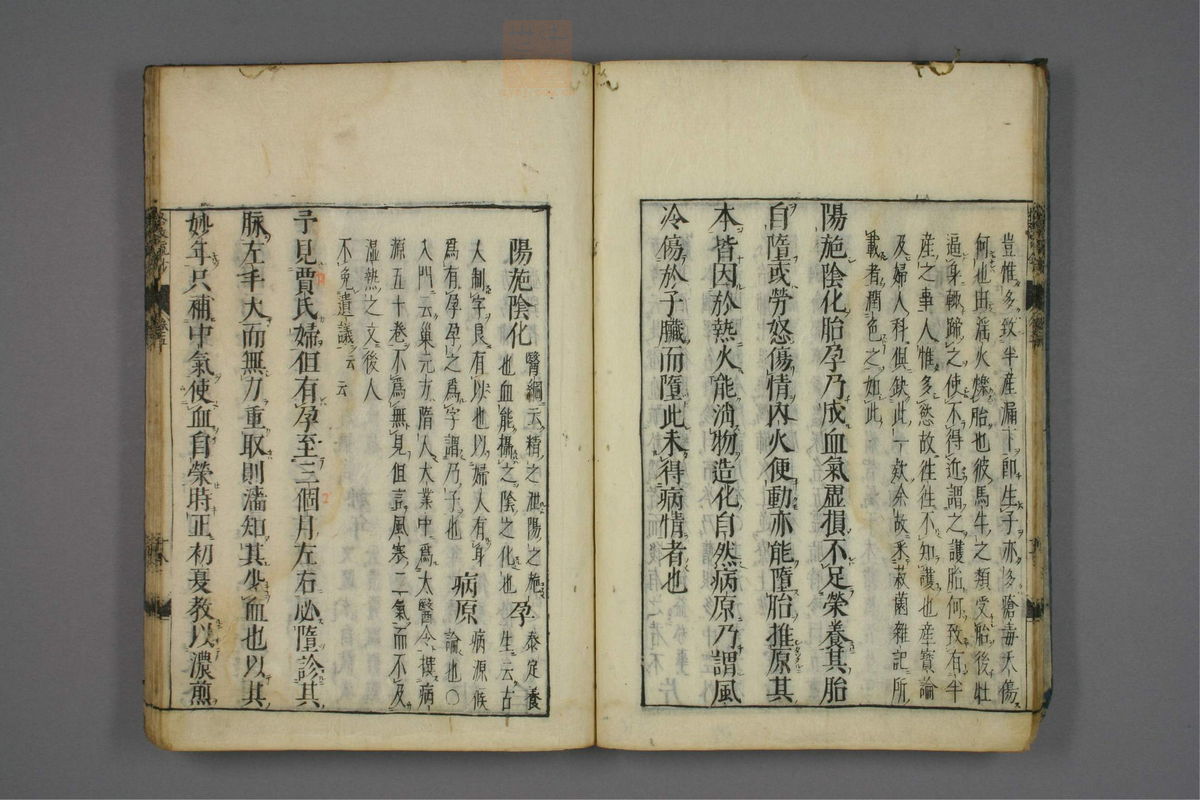 豈惟多致半産漏下即生子亦多瘡毒夭傷
何也由滛火燥胎也彼馬牛之類受胎後牡
逼身輙蹄之使不得近謂之護胎何致有半
産之事人惟多慾故往往不知護也産寳論
及婦人科倶缺此一欵余故釆菽薗雜記所
載者潤色之如此
陽施陰化胎孕乃成血氣虚損不足榮養其胎
自墮或勞怒傷情内火便動亦能墮胎推原其
本皆因於熱火能消物造化自然病原乃謂風
冷傷於子臓而墮此未得病情者也
陽施陰化 醫綱云精之泄陽之施
也血能攝之陰之化也 孕 泰定養
生云古
人制字良有以也以婦人有身
爲有孕孕之爲字謂乃子也 病原 病源候
論也○
入門云巢元方隋人大業中爲太醫令撰病
源五十巻不爲無見但言風寒二氣而不及
湿熱之文後人
不免遺議云云
予見賈氏婦但有孕至三個月左右必墮診其
脉左手大而無力重取則濇知其少血也以其
妙年只補中氣使血自榮時正初夏教以濃煎